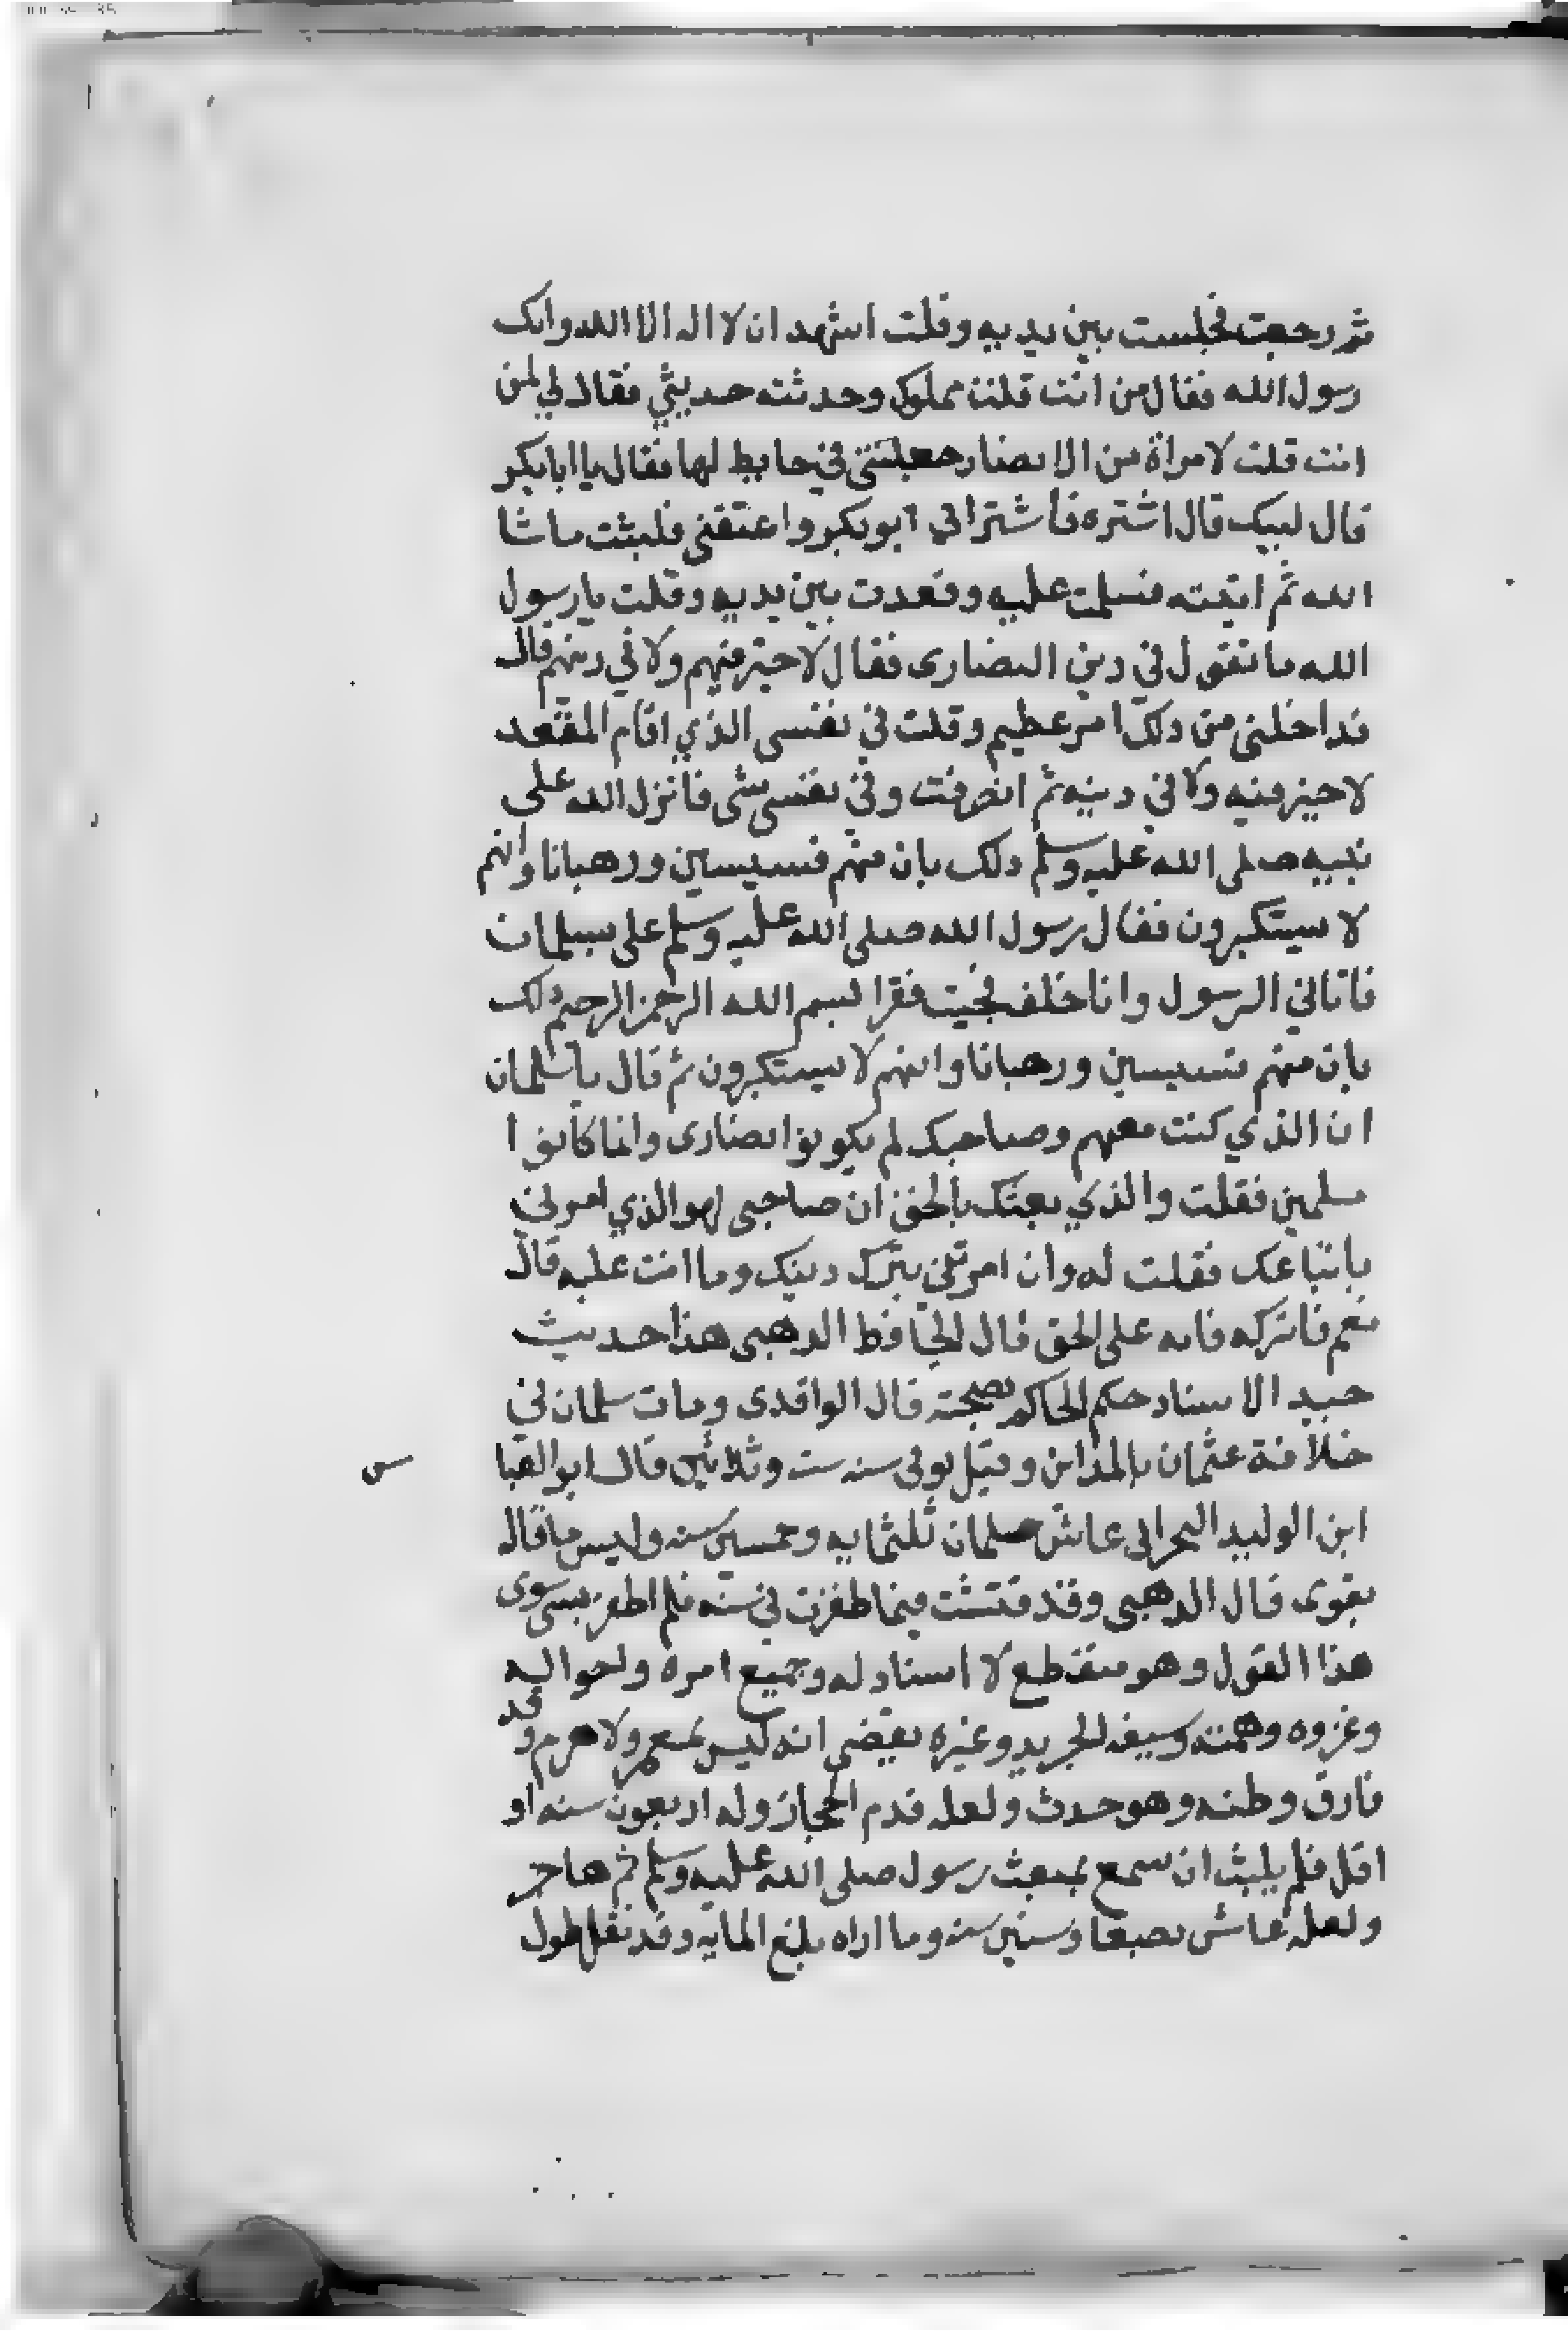 ثم رجعت فجلست بين يديه وقلت اشهد ان لا اله الا الله وانك
رسول الله فقال من انت قلت مملوك وحدثته حديثي فقال لي لمن
انت قلت لامراة من الانصار جعلتني في حايط لها فقال يا ابا بكر
قال لبيك قال اشتره فاشتراني ابو بكر واعتقني فلبثت ما شا
الله ثم اتيته فسلمت عليه وقعدت بين يديه وقلت يا رسول
الله ما تقول في دين النصارى فقال لا خير فيهم ولا في دينهم قال
فداخلني من ذلك امر عظيم وقلت في نفسي الذي اقام المقعد
لا خير فيه ولا في دينه ثم انصرفت وفي نفسي شي فانزل الله على
نبيه صلى الله عليه وسلم ذلك بان منهم قسيسين ورهبانا وانهم
لا يستكبرون فقال رسول الله صلى الله عليه وسلم على بسلمان
فاتاني الرسول وانا خلف فجيت فقرا بسم الله الرحمن الرحيم ذلك
بان منهم قسيسين ورهبانا وانهم لا يستكبرون ثم قال يا سلمان
ان الذي كنت معهم وصاحبك لم يكونوا نصارى وانما كانوا
مسلمين فقلت والذي بعثك بالحق ان صاحبي لهو الذي امرني
باتباعك فقلت له وان امرتني بترك دينك وما انت عليه قال
نعم فاتركه فانه على الحق قال الحافظ الذهبي هذا حديث
جيد الاسناد حكم الحاكم بصحته قال الواقدي ومات سلمان في
خلافة عثمان بالمداين وقيل توفي سنه ست وثلاثين قال ابو العبا
س
ابن الوليد البحراني عاش سلمان ثلثمايه وخمسين سنه وليس ما قاله
بقوى قال الذهبي وقد فتشت فيما ظفرت في سنه فلم اظفر بشي سوى
هذا القول وهو منقطع لا اسناد له وجميع امره واحواله
وغزوه وهمته وسيفه للجريد وغيره يقتضي انه ليس بمعمر ولا هرم وقد
فارق وطنه وهو حدث ولعله قدم الحجاز وله اربعون سنه او
اقل فلم يلبث ان سمع بمبعث رسول صلى الله عليه وسلم ثم هاجر
ولعله عاش بضعا وستين سنه وما اراه بلغ المايه وقد نقل طول